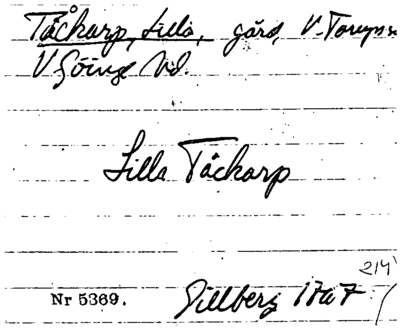 Tåckarp, Lilla, gård, V. Torups
V Göinge hd.
Lilla Tåckarp
214
Nr 5369. Gillberg 1767